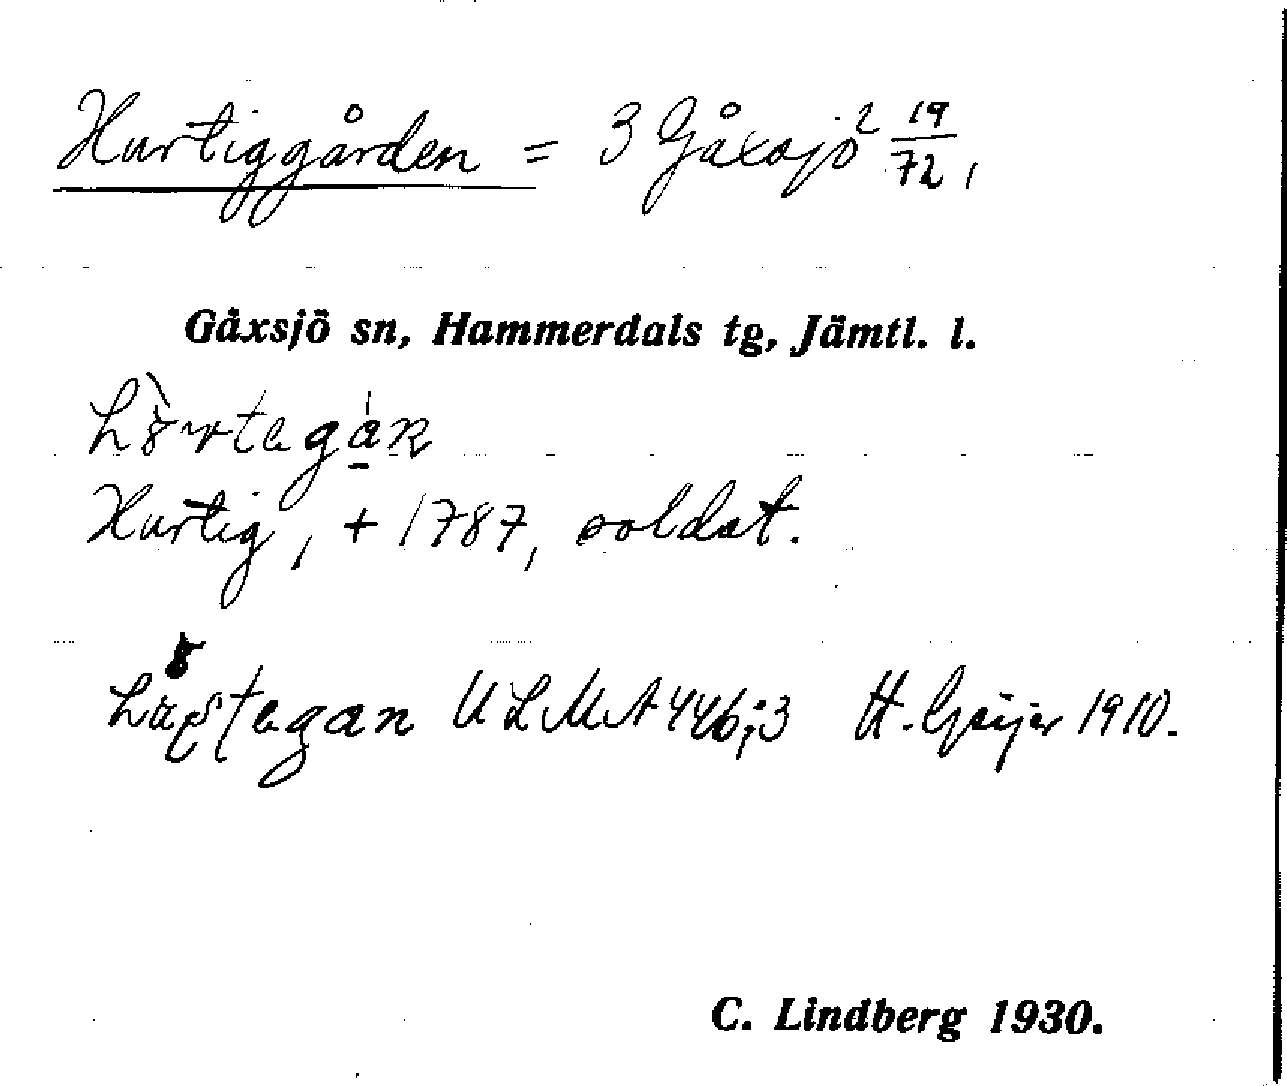 Hurtiggården = 3 Gåxsjö² 19/72,
Gåxsjö sn, Hammerdals tg, Jämtl. l.
Hurtig, + 1787, soldat.
ULMA 446:3 H. Geijer 1910.
C. Lindberg 1930.